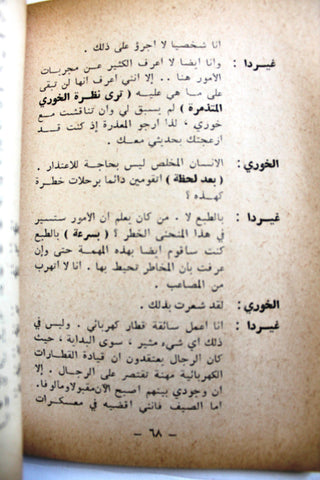 أنا شخصيا لا أجرؤ على ذلك .
غيردا : وأنا ايضا لا أعرف الكثير عن مجريات
الأمور هنا .. إلا أنني أعرف أنها لن تبقى
على ما هي عليه ( ترى نظرة الخوري
المتذمرة ) لم يسبق لي وأن تناقشت مع
خوري ، لذا ارجو المعذرة إذ كنت قد
ازعجتك بحديثي معك .
الخوري : الانسان المخلص ليس بحاجة للاعتذار .
( بعد لحظة ) اتقومين دائما برحلات خطرة
كهذه ؟
غيردا : بالطبع لا . من كان يعلم أن الأمور ستسير
في هذا المنحنى الخطر ؟ ( بسرعة ) بالطبع
كنت سأقوم ايضا بهذه المهمة حتى وإن
عرفت بأن المخاطر تحيط بها . أنا لا أتهرب
من المصاعب .
الخوري : لقد شعرت بذلك .
غيردا : أنا اعمل سائقة قطار كهربائي . وليس في
ذلك أي شيء مثير ، سوى البداية ، حيث
كان الرجال يعتقدون أن قيادة القطارات
الكهربائية مهنة تقتصر على الرجال . إلا
أن وجودي بينهم أصبح الآن مقبولا ومالوفا .
أما الصيف فانني اقضيه في معسكرات
- ٦٨ -